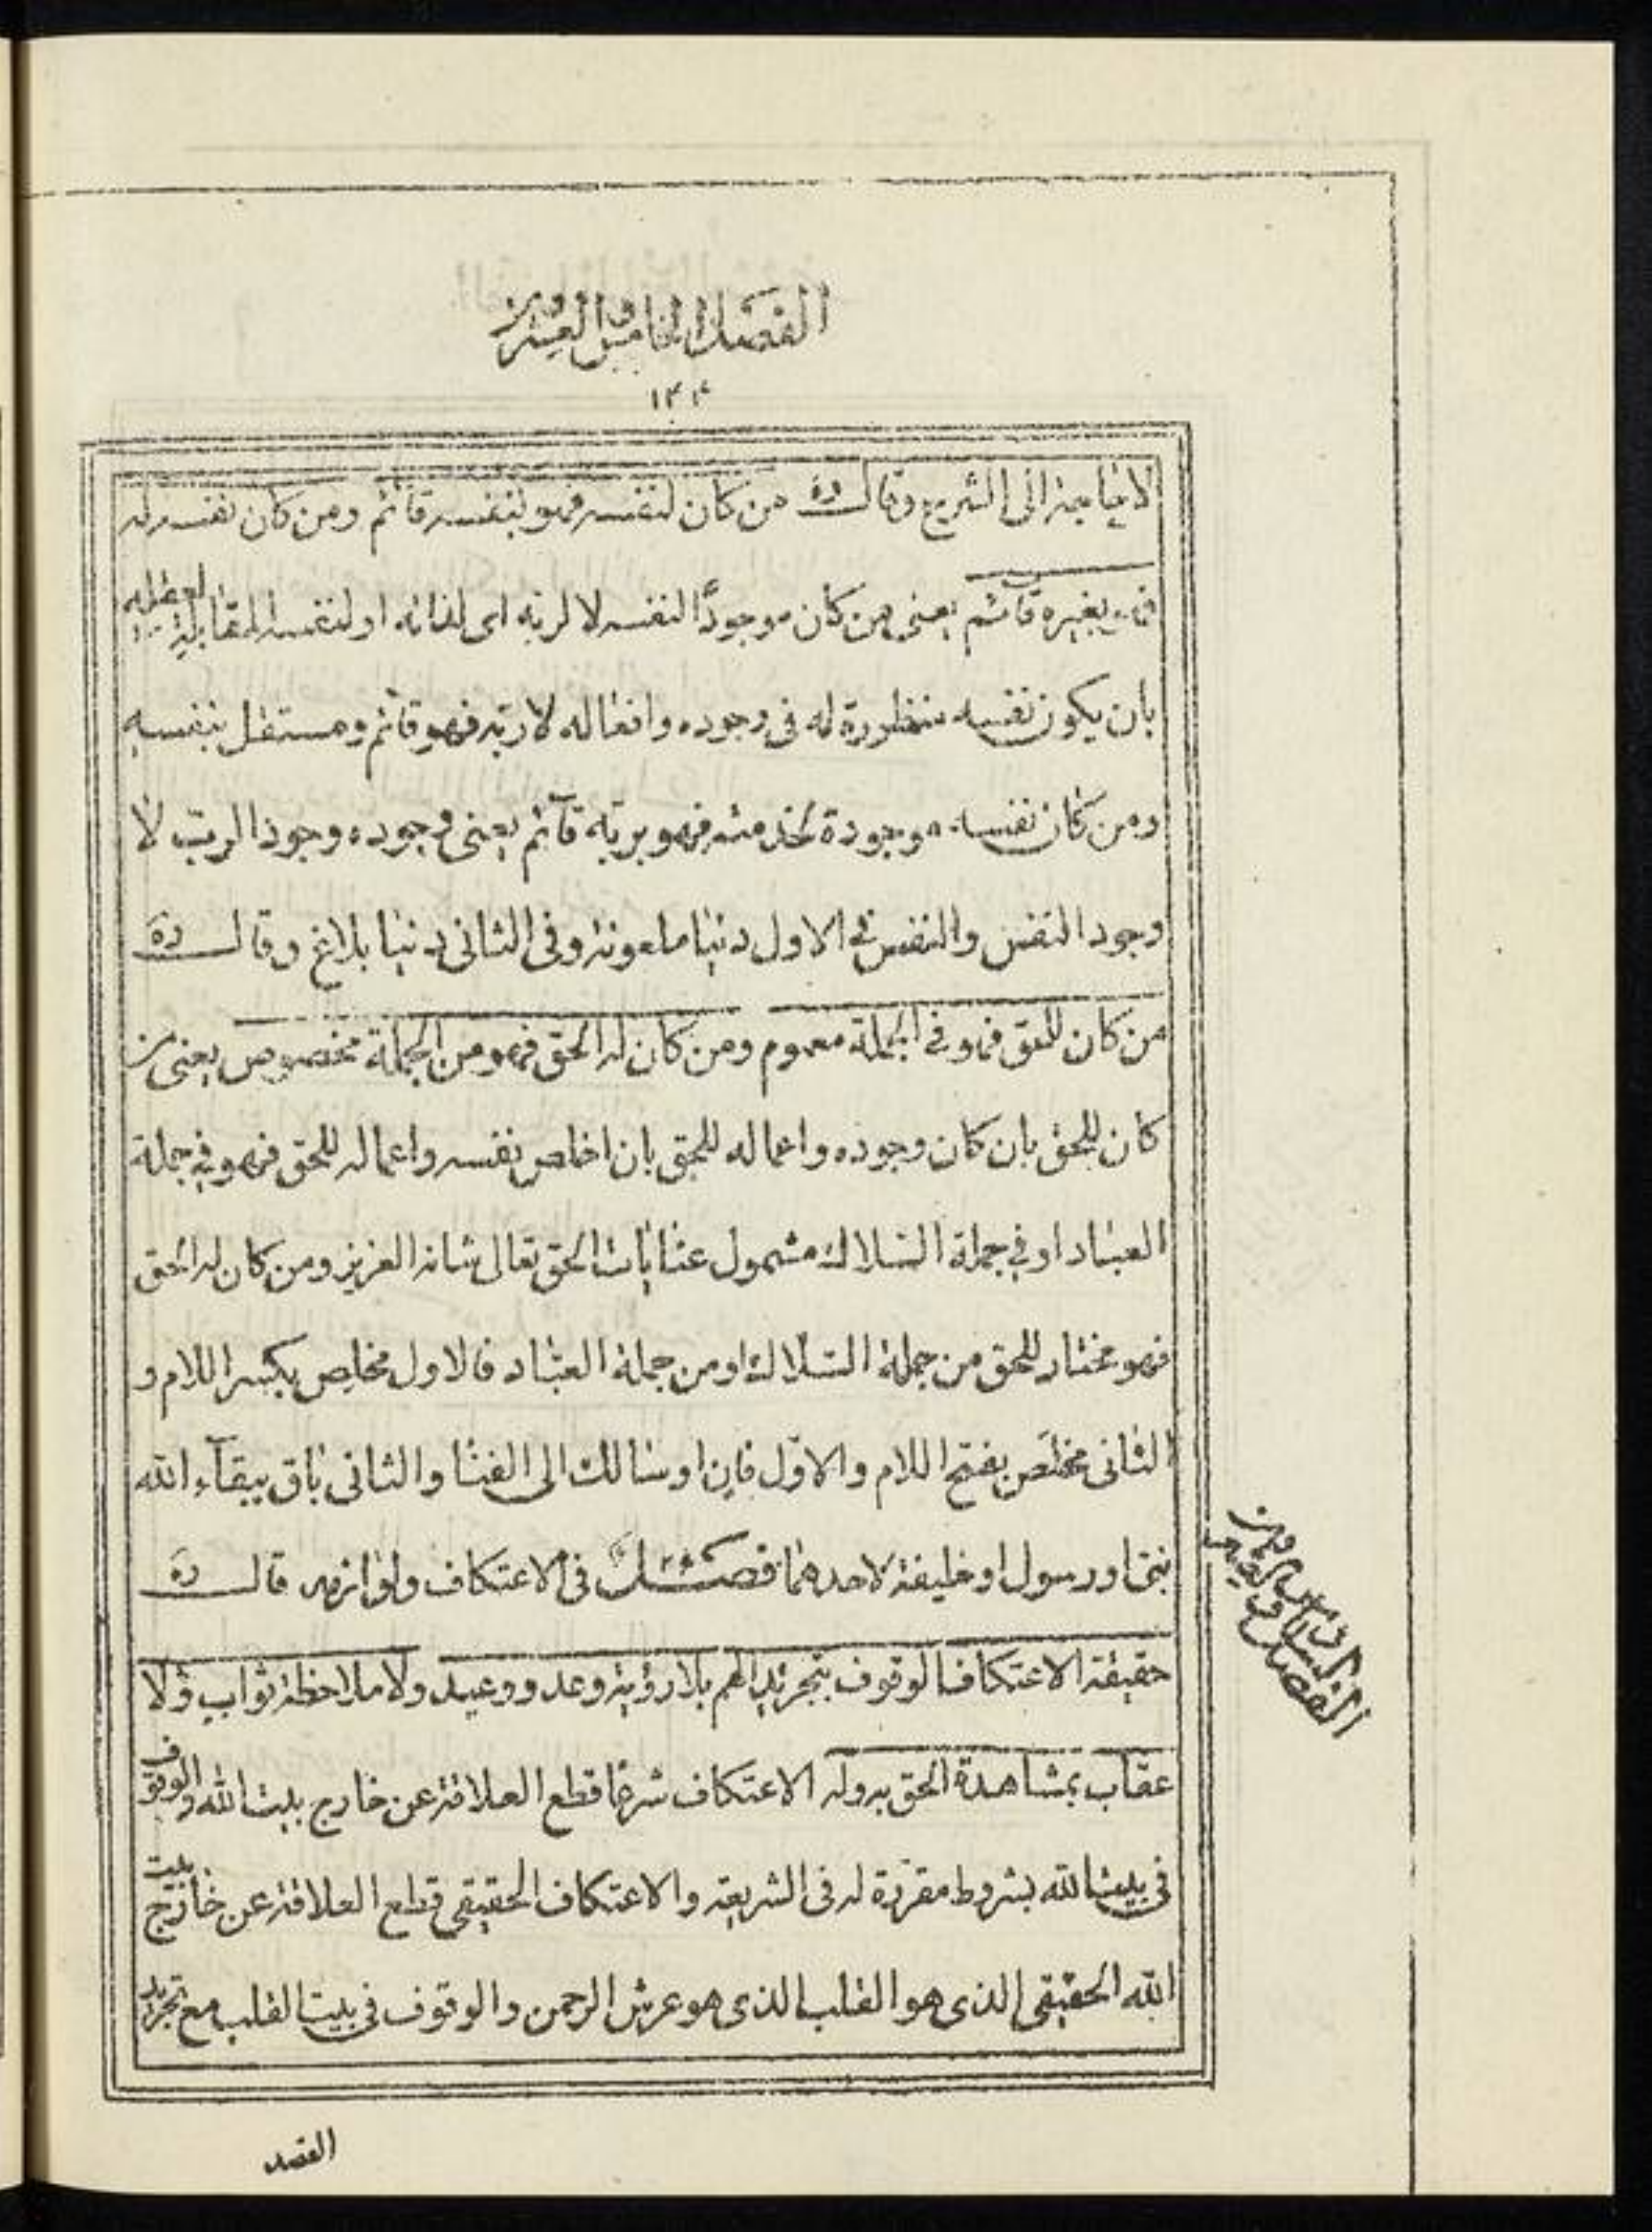 الفصل الخامس والعشرون
١٢٤
لاحاجة الى الشريع وقال ره من كان لنفسه فهو بنفسه قائم ومن كان نفسه له
فهو بغيره قآئم يعنى من كان موجودًا لنفسه لا لربّه اى لذاته او لنفسه المقابلة لعقله
بان يكون نفسه منظورة له فى وجوده وافعاله لا ربّه فهو قائم ومستقل بنفسه
ومن كان نفسه موجودة لخدمته فهو بربّه قآئم يعنى وجوده وجود الربّ لا
وجود النفس والنفس فى الاول دنيا ملعونة وفى الثانى دنيا بلاغ وقال ره
من كان للحق فهو فى الجملة معموم ومن كان له الحق فهو من الجملة مخصوص يعنى من
كان للحق بان كان وجوده واعماله للحق بان اخلص نفسه واعماله للحق فهو فى جملة
العباد او فى جملة السّلاك مشمول عنايات الحق تعالى شانه العزيز ومن كان له الحق
فهو مختار للحق من جملة السّلاك او من جملة العبّاد فالاول مخلِص بكسر اللام و
الثانى مخلَص بفتح اللام والاوّل فانٍ او سالك الى الفنا والثانى باق ببقآء الله
نبىّ او رسول او خليفة لاحدهما فصل فى الاعتكاف ولوازمه قال ره
حقيقة الاعتكاف الوقوف بتجريد الهم بلا رؤية وعد ووعيد ولا ملاحظة ثواب ولا
عقاب بمشاهدة الحق بدوله الاعتكاف شرعًا قطع العلاقة عن خارج بيت الله والوقوف
فى بيت الله بشروط مقرّرة له فى الشريعة والاعتكاف الحقيقى قطع العلاقة عن خارج بيت
الله الحقيقى الذى هو القلب الذى هو عرش الرحمن والوقوف فى بيت القلب مع تجريد
الفصل السادس والعشرون
القصد